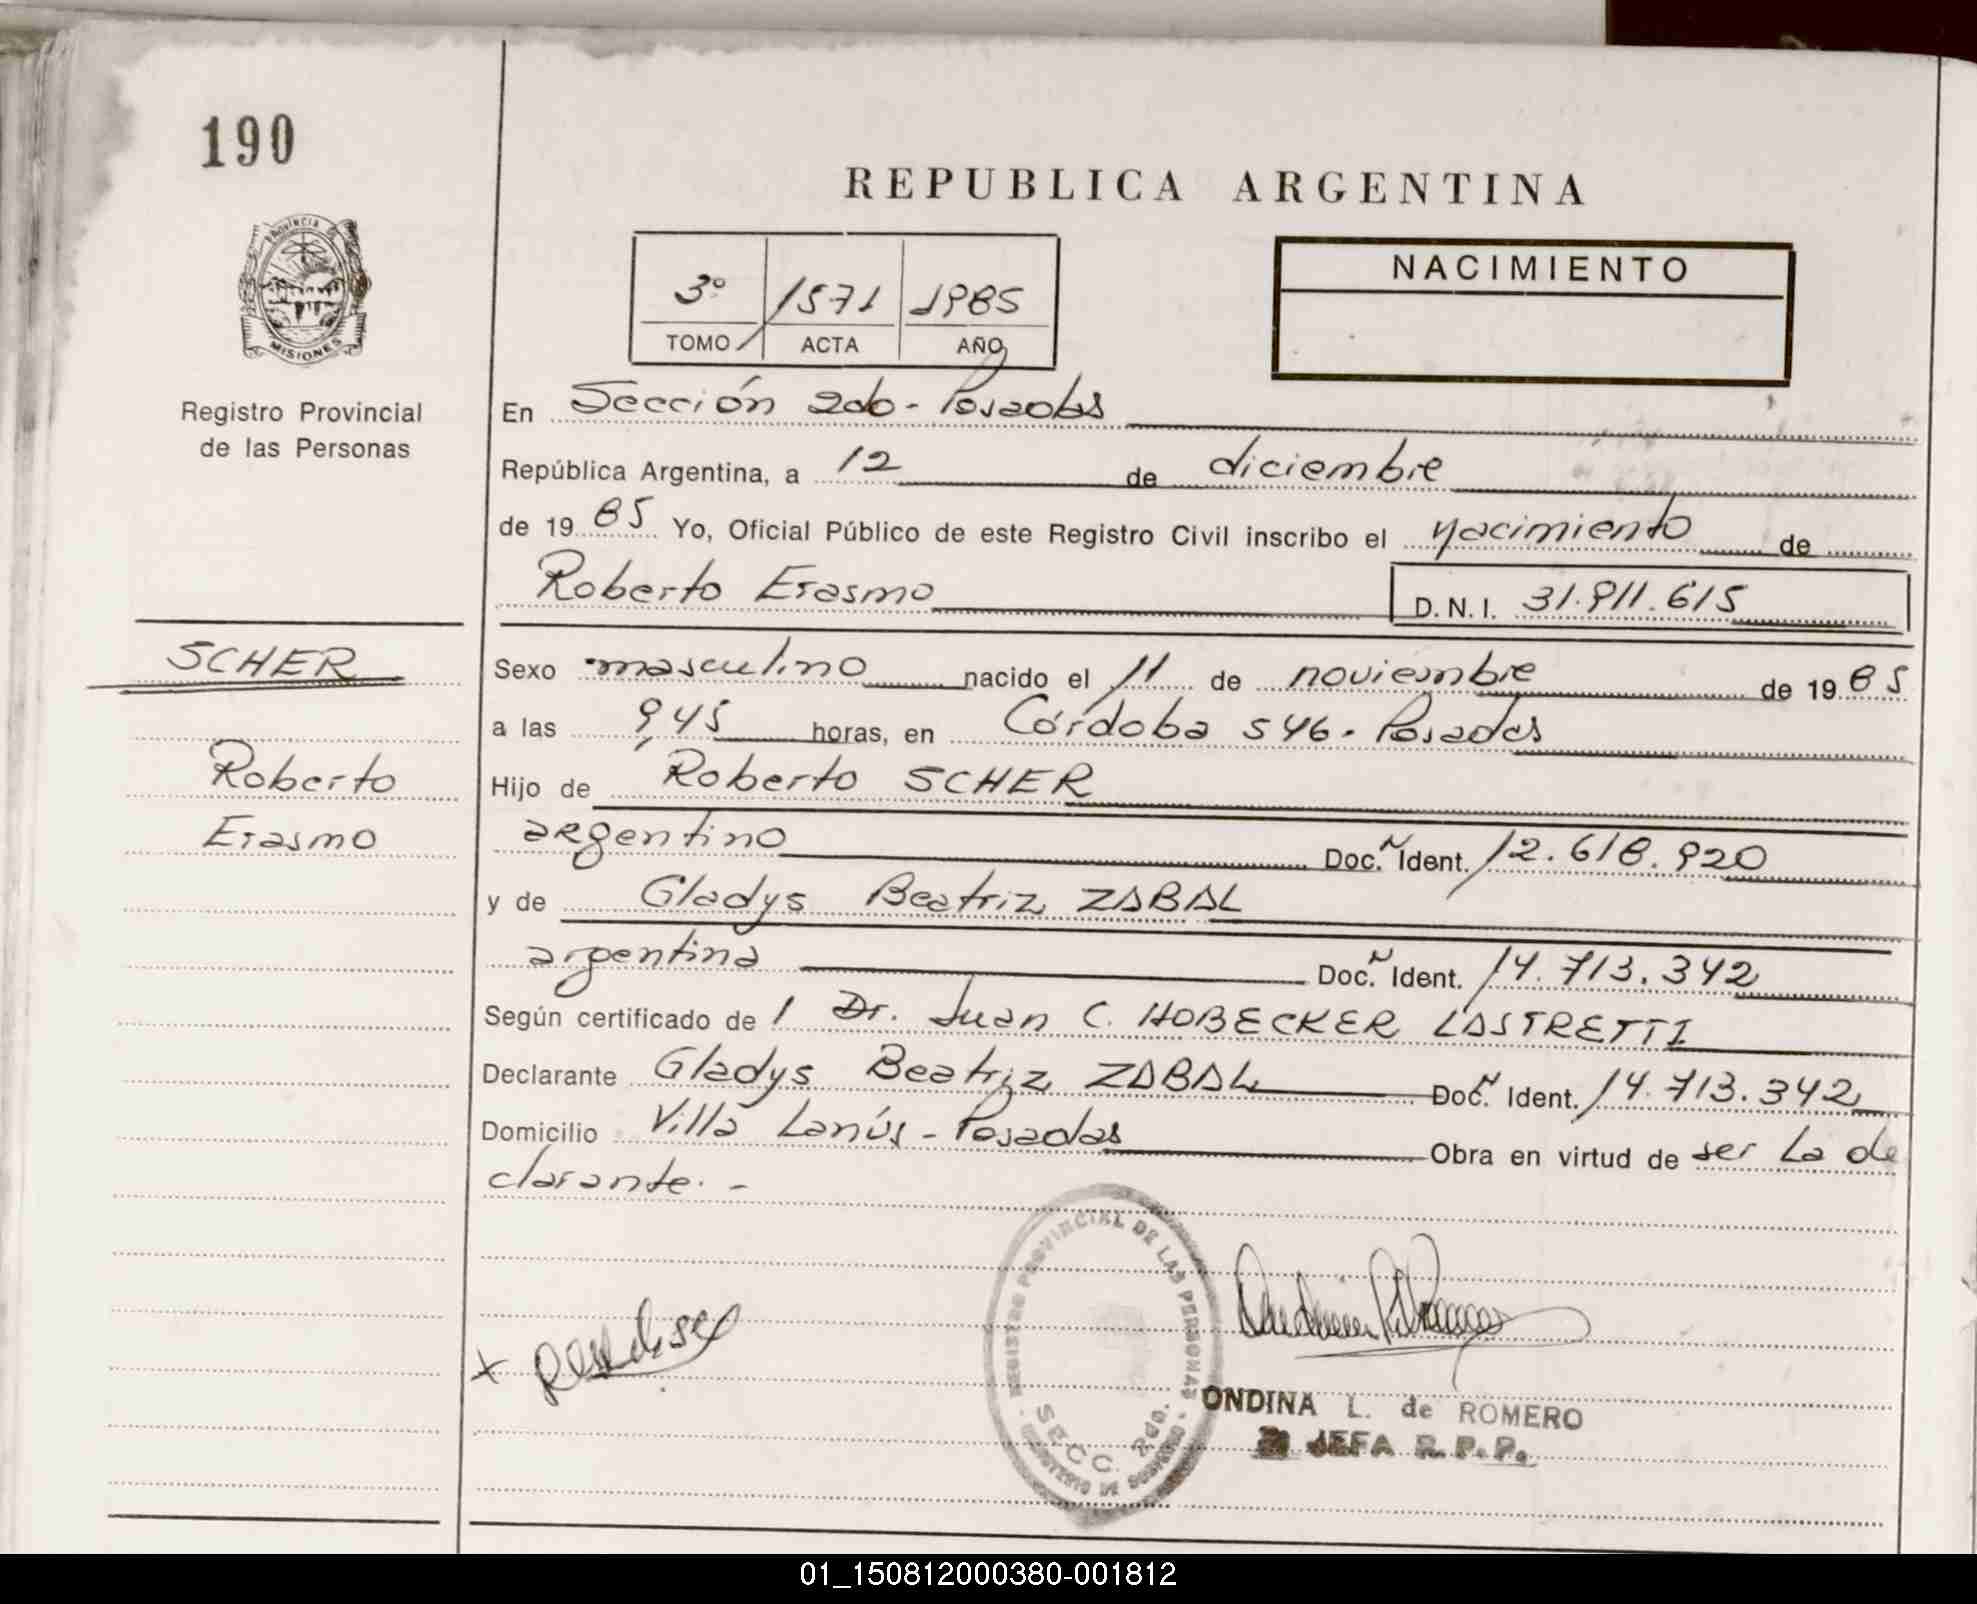 190
REPUBLICA ARGENTINA
PROVINCIA DE
MISIONES
NACIMIENTO
3º 1571 1985
TOMO ACTA AÑO
Registro Provincial
de las Personas
En Sección 2da - Posadas
República Argentina, a 12 de diciembre
de 19 85 Yo, Oficial Público de este Registro Civil inscribo el nacimiento de
Roberto Erasmo D.N.I. 31.911.615
SCHER
Roberto
Erasmo
Sexo masculino nacido el 11 de noviembre de 19 85
a las 9,45 horas, en Córdoba 546. Posadas
Hijo de Roberto SCHER
argentino Doc. Ident. 12.618.920
y de Gladys Beatriz ZABAL
argentina Doc. Ident. 14.713.342
Según certificado de l Dr. Juan C. HOBECKER LASTRETTI
Declarante Gladys Beatriz ZABAL Doc. Ident. 14.713.342
Domicilio Villa Lanús - Posadas Obra en virtud de ser la de
clarante. -
REGISTRO PROVINCIAL DE LAS PERSONAS
SECC. 2da.
MINISTERIO DE GOBIERNO
ONDINA L. de ROMERO
JEFA R. P. P.
01_150812000380-001812